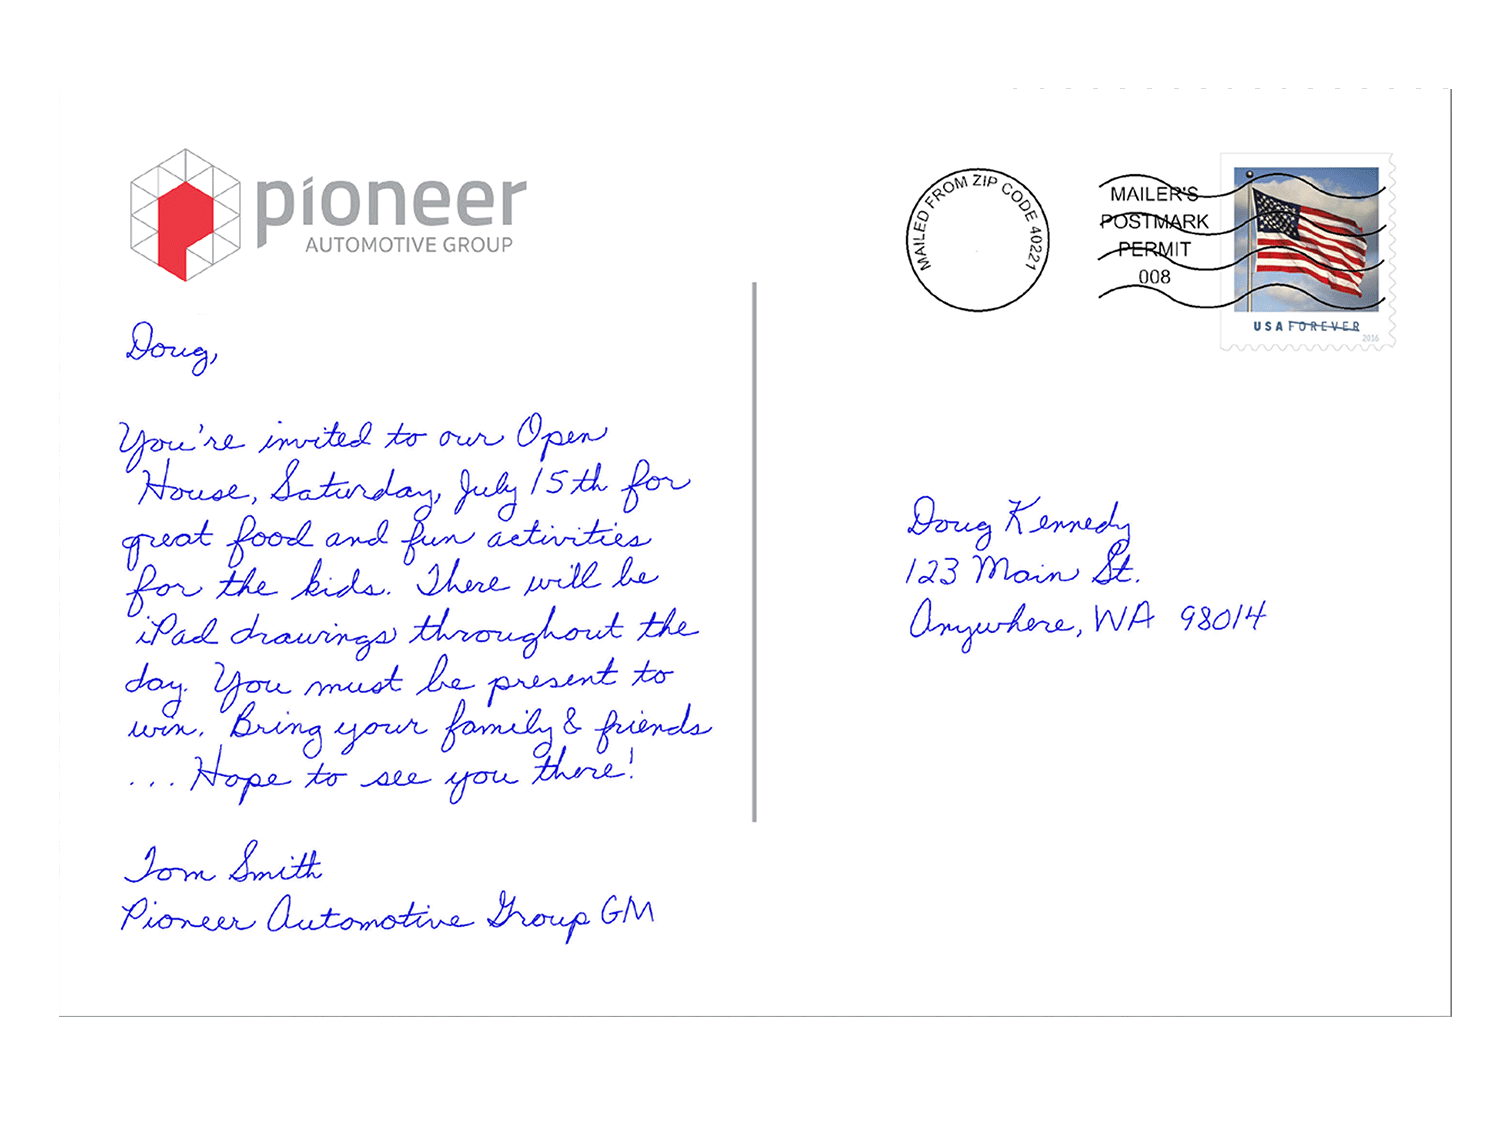 pioneer
AUTOMOTIVE GROUP
Doug,
You're invited to our Open
House, Saturday, July 15th for
great food and fun activities
for the kids. There will be
iPad drawings throughout the
day. You must be present to
win. Bring your family & friends
... Hope to see you there!
Tom Smith
Pioneer Automotive Group GM
MAILED FROM ZIP CODE 40221
MAILER'S
POSTMARK
PERMIT
008
USA FOREVER
2016
Doug Kennedy
123 Main St.
Anywhere, WA 98014